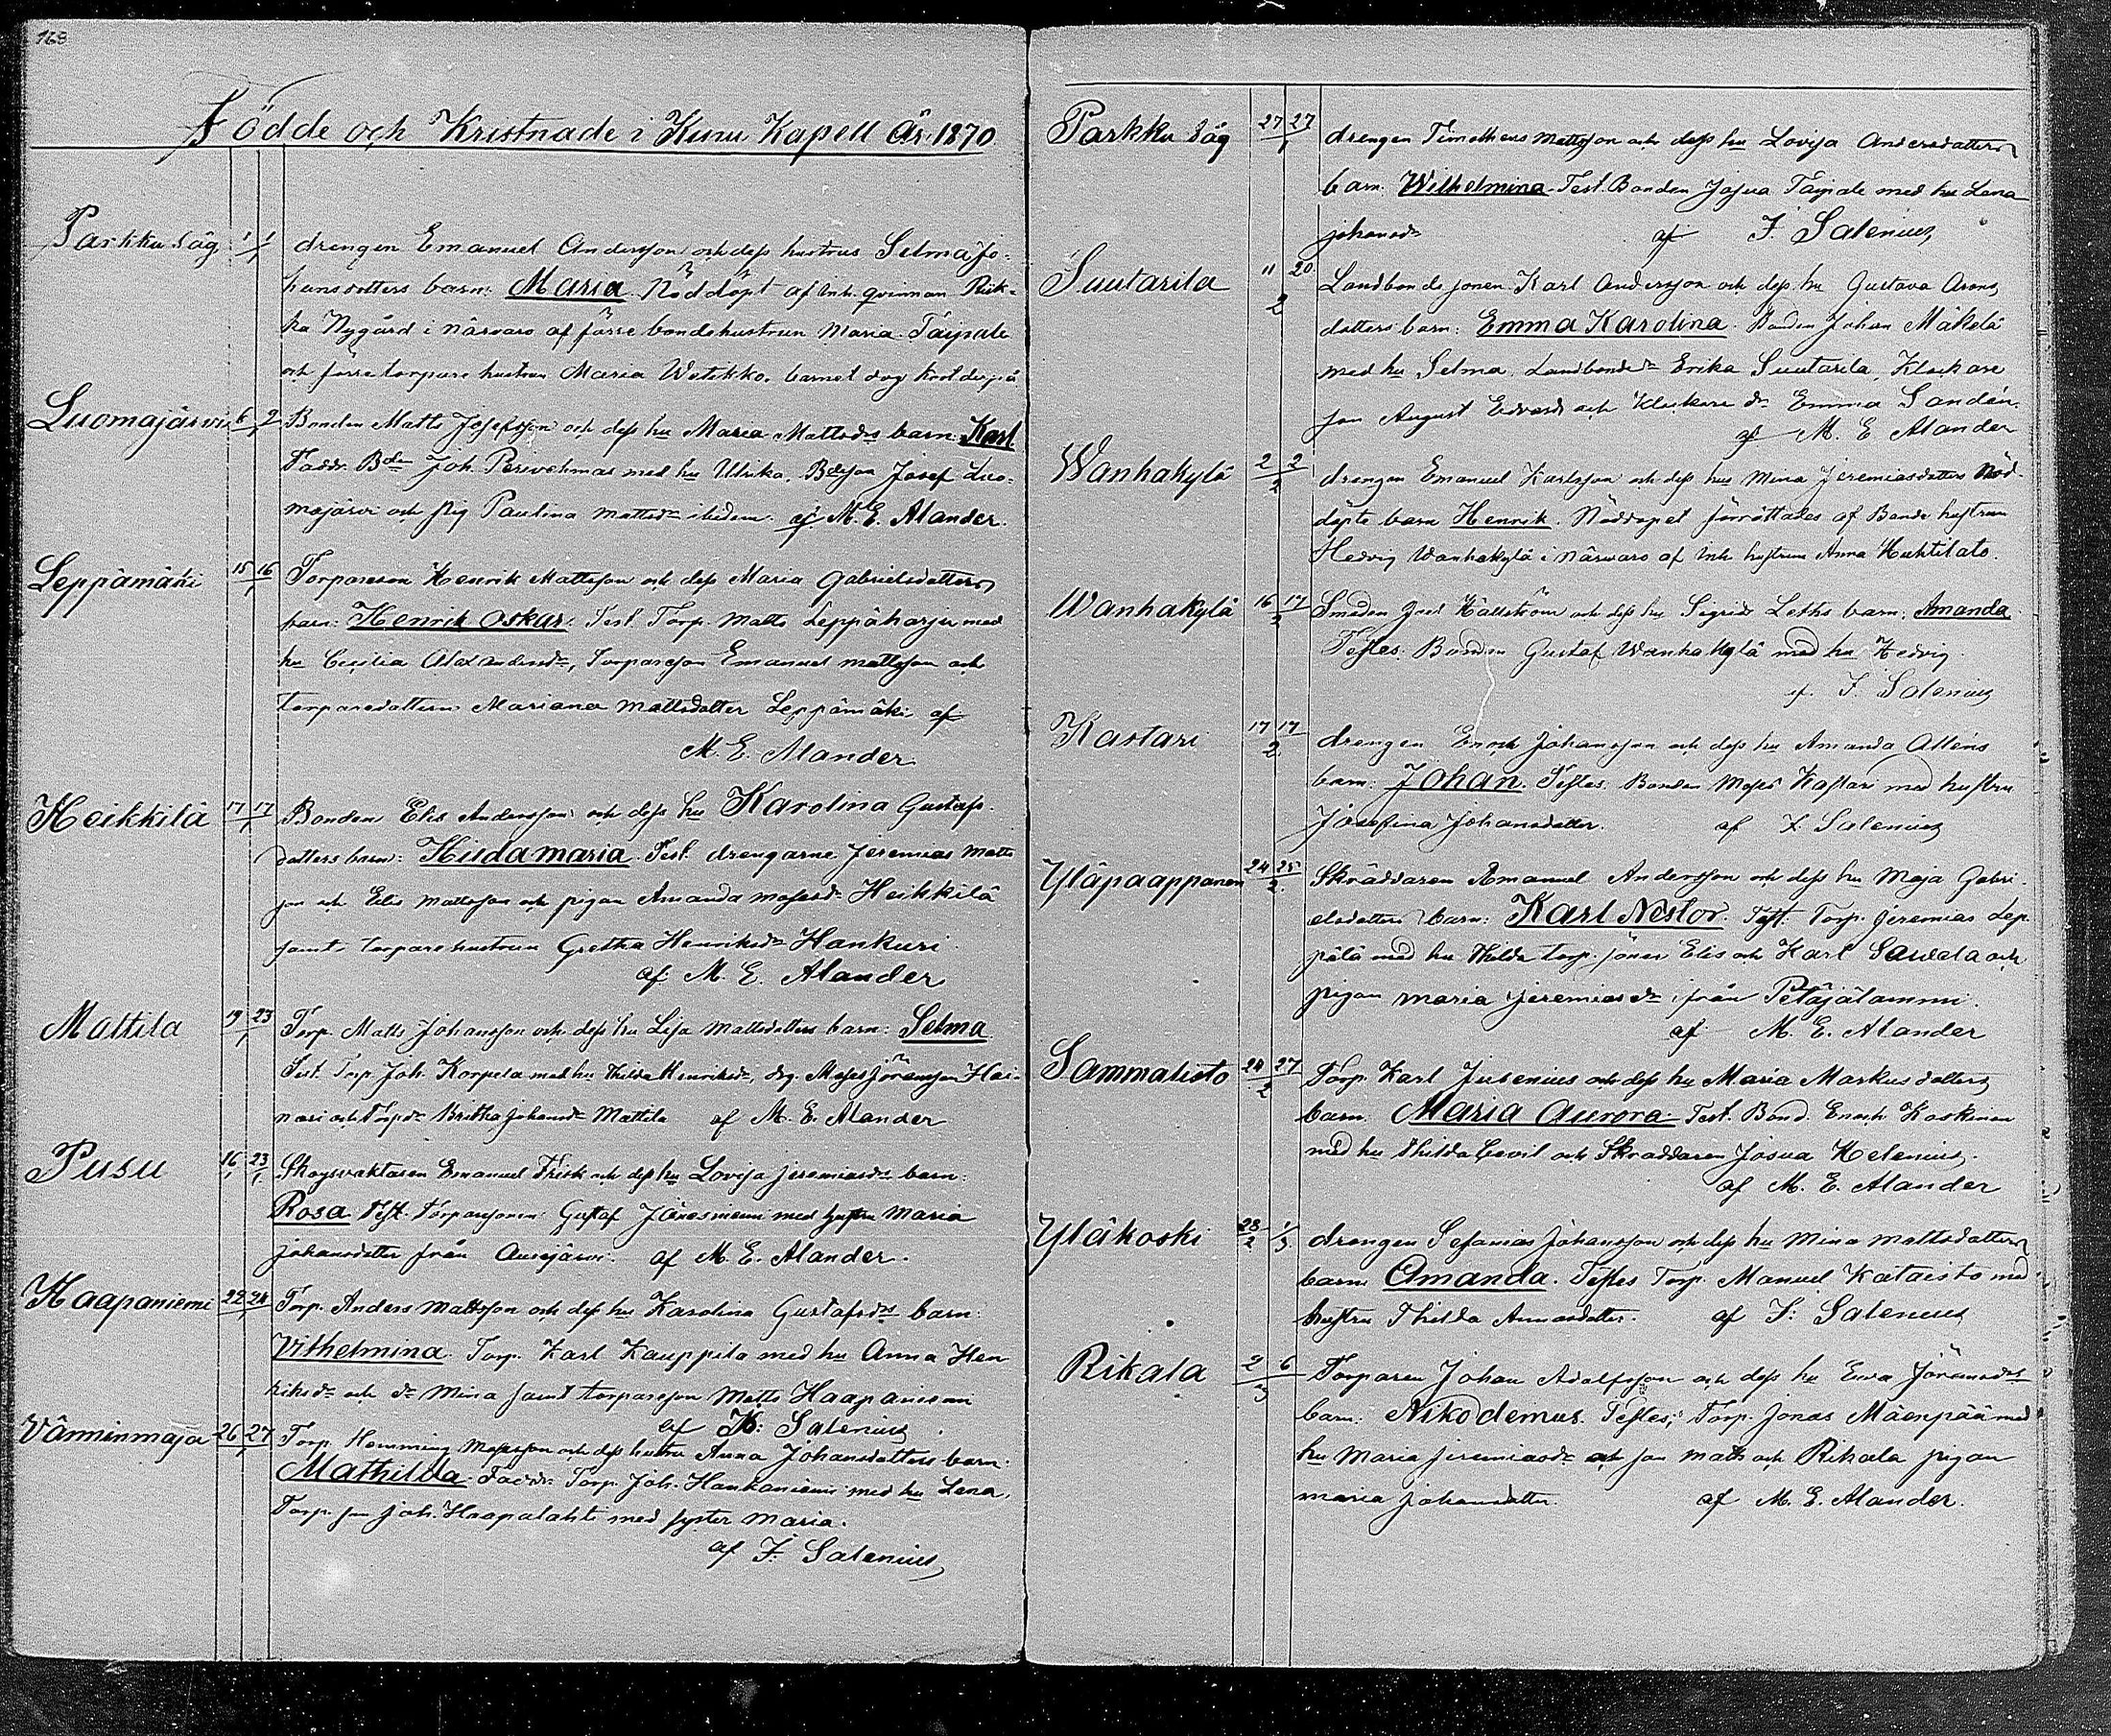 168
Födde och Kristnade i Kuru Kapell År 1870.
Parkku Såg 1/1 1/1 drengen Emanuel Andersson och dess hustrus Selma Jo-
hansdotters barn: Maria. Nöddöpt af Inh. qvinnan Riik-
ka Nygård i närvaro af förre bondehustrun Maria Taipale
och förre torpare hustrun Maria Wetikko. barnet dog kort derpå
Luomajärvi 6 9/1 Bonden Matts Josefsson och dess hu Maria Mattsdrs barn: Karl
Faddr. Bden Joh. Perivehmas med hu Ulrika, Bdeson Josef Luo-
majärvi och pig Paulina Mattsdr ibidem. af M. E. Alander.
Leppämäki 15 16/1 Torpareson Henrik Mattsson och dess Maria Gabrielsdotters
barn: Henrik Oskar. Test. Torp. Matts Leppäharju med
hu Cecilia Alexandersdr, Torpareson Emanuel Mattsson och
torparedottern Mariana Mattsdotter Leppämäki, af
M. E. Alander.
Heikkilä 17 17/1 Bonden Elis Andersson och dess hu Karolina Gustafs-
dotters barn: Hilda Maria. Test. drengarne Jeremias Matts
son och Elis Mattsson och pigan Amanda Mosesdr Heikkilä
samt torparehustrun Gretha Henriksdr Hankuri.
af M. E. Alander
Mattila 19 23/1 Torp. Matts Johansson och dess hu Lisa Mattsdotters barn: Selma.
Test. Torp. Joh. Korpela med hu Thilda Henriksdr, drg. Moses Göransson Hai-
nari och Torpdr Britha Johansdr Mattila af M. E. Alander
Pusu 16/1 23/1 Skogsvaktaren Emanuel Frisk och dess hu Lovisa Jeremiasdrs barn:
Rosa. Test. Torparsonen Gustaf Jänesniemi med hustru Maria
Johansdotter från Aurejärvi. af M. E. Alander.
Haapaniemi 22 24/1 Torp. Anders Mattsson och dess hu Karolina Gustafsdrs barn:
Vilhelmina. Torp. Karl Kauppila med hu Anna Hen
riksdr och dr Mina samt torpareson Matts Haapaniemi
af F. Salenius.
Vänninmaja 26 27/1 Torp. Hemming Mosesson och dess hustru Anna Johansdotters barn:
Mathilda. Faddr. Torp. Joh. Hankaniemi med hu Lena,
Torp. son Joh. Haapalahti med syster Maria.
af F. Salenius
Parkku Såg 27 27/1 drengen Timotheus Mattsson och dess hu Lovisa Andersdotters
barn: Wilhelmina. Test. Bonden Josua Taipale med hu Lena
Johansdr af F. Salenius
Suutarila 11 20/2 Landbondesonen Karl Andersson och dess hu Gustava Arons
dotters barn: Emma Karolina. Bonden Johan Mäkelä
med hu Selma, Landbondedr Erika Suutarila, Klockare
son August Edvard och Klockare dr Emma Sandén.
af M. E. Alander
Wanhakylä 2 2/2 drengen Emanuel Karlsson och dess hus Mina Jeremiasdotters nöd-
döpte barn Henrik. Nöddopet förrättades af Bonde hustrun
Hedvig Wanhakylä i närvaro af Inh. hustrun Anna Huhtilato.
Wanhakylä 16 17/2 Smeden Joel Hällström och dess hu Sigrid Leths barn: Amanda.
Testes: Bonden Gustaf Wanhakylä med hu Hedvig.
af F. Salenius
Kastari 17 17/2 drengen Enoch Johansson och dess hu Amanda Alléns
barn: Johan. Testes. Bonden Moses Kastari med hustru
Josefina Johansdotter. af F. Salenius
Yläpaappanen 24 25/2 Skräddaren Emanuel Andersson och dess hu Maja Gabri-
elsdotters barn: Karl Nestor. Test. Torp. Jeremias Lep
pälä med hu Thilda torp. söner Elis och Karl och
pigan Maria Jeremiasdr ifrån Petäjälammi.
af M. E. Alander
Sammalisto 24 27/2 Torp. Karl Juvenius och dess hu Maria Markusdotters
barn. Maria Aurora. Test. Bond. Enoch Koskinen
med hu Thilda Cevil och Skräddaren Josua Helenius.
af M. E. Alander
Yläkoski 28/2 1/3 drengen Sefanias Johansson och dess hu Mina Mattsdotters
barn: Amanda. Testes Torp. Manuel Kataisto med
hustru Thilda Annasdotter. af F. Salenius
Rikala 2 6/3 Torparen Johan Adolfsson och dess hu Eva Göransdrs
barn: Nikodemus. Testes; Torp. Jonas Mäenpää med
hu Maria Jeremiasdr och son Matts och Rikala pigan
Maria Johansdotter. af M. E. Alander.